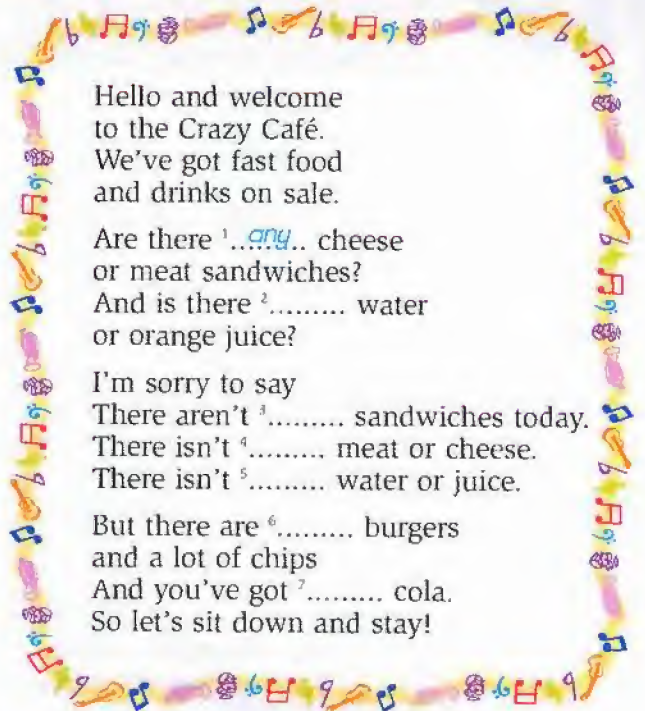 Hello and welcome
to the Crazy Café.
We've got fast food
and drinks on sale.
Are there ¹..any.. cheese
or meat sandwiches?
And is there ²......... water
or orange juice?
I'm sorry to say
There aren't ³......... sandwiches today.
There isn't ⁴......... meat or cheese.
There isn't ⁵......... water or juice.
But there are ⁶......... burgers
and a lot of chips
And you've got ⁷......... cola.
So let's sit down and stay!